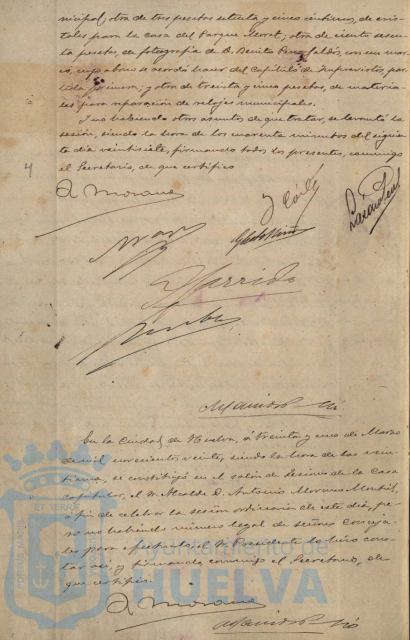 nicipal; otra de tres pesetas setenta y cinco céntimos, de cris-
tales para la casa del Parque Moret; otra de ciento
pesetas, de fotografía de D. Benito con su mar-
co, cuyo abono se acordó hacer del Capítulo de Imprevistos, par-
tida primera; y otra de treinta y cinco pesetas, de materia-
les para reparación de relojes municipales.
Y no habiendo otros asuntos de que tratar, se levantó la
sesión, siendo la hora de los cuarenta minutos del siguien-
te día veintisiete, firmando todos los presentes, conmigo
el Secretario, de que certifico
4
A Moreno
Garrido
En la Ciudad de Huelva, á treinta y uno de Marzo
de mil novecientos veinte, siendo la hora de las vein-
tiuna, se constituyó en el salón de Sesiones de la Casa
capitular, el Sr. Alcalde D. Antonio Moreno
a fin de celebrar la sesión ordinaria de este día, pe-
ro no habiendo número legal de señores Conceja-
les para efectuarla, el Sr. Presidente lo hizo cons-
tar así, y firmando conmigo el Secretario, de
que certifico.
A Moreno
Ayuntamiento de
HUELVA